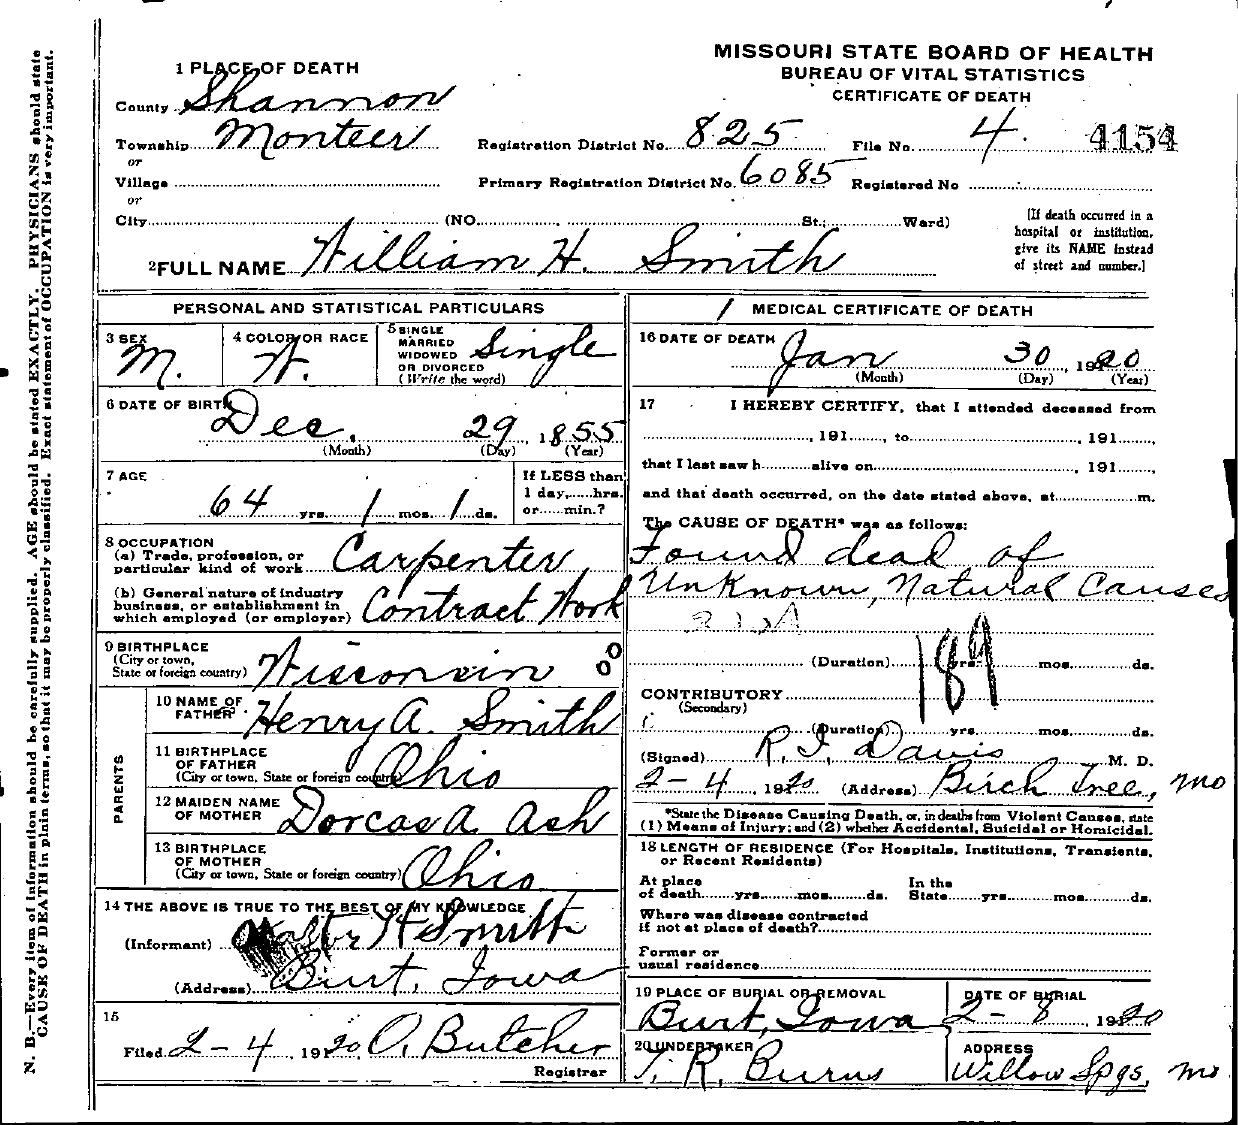 MISSOURI STATE BOARD OF HEALTH
BUREAU OF VITAL STATISTICS
CERTIFICATE OF DEATH
1 PLACE OF DEATH
County Shannon
Township Monteer
or
Village
or
City (NO. St.; Ward)
Registration District No. 825 File No. 4. 4154
Primary Registration District No. 6085 Registered No
[If death occurred in a
hospital or institution,
give its NAME instead
of street and number.]
2 FULL NAME William H. Smith
PERSONAL AND STATISTICAL PARTICULARS
3 SEX M.
4 COLOR OR RACE W.
5 SINGLE
MARRIED
WIDOWED
OR DIVORCED
(Write the word) Single
6 DATE OF BIRTH
Dec. 29, 1855
(Month) (Day) (Year)
7 AGE
64 yrs. 1 mos. 1 ds.
If LESS than
1 day, hrs.
or min.?
8 OCCUPATION
(a) Trade, profession, or
particular kind of work Carpenter
(b) General nature of industry
business, or establishment in
which employed (or employer) Contract Work
9 BIRTHPLACE
(City or town,
State or foreign country) Wisconsin
PARENTS
10 NAME OF
FATHER Henry A. Smith
11 BIRTHPLACE
OF FATHER
(City or town, State or foreign country) Ohio
12 MAIDEN NAME
OF MOTHER Dorcas A. Ash
13 BIRTHPLACE
OF MOTHER
(City or town, State or foreign country) Ohio
14 THE ABOVE IS TRUE TO THE BEST OF MY KNOWLEDGE
(Informant) Walter H Smith
(Address) Burt, Iowa
15
Filed 2-4, 1920 O. Butcher
Registrar
MEDICAL CERTIFICATE OF DEATH
16 DATE OF DEATH
Jan 30 1920
(Month) (Day) (Year)
17 I HEREBY CERTIFY, that I attended deceased from
, 191 , to , 191 ,
that I last saw h alive on , 191 ,
and that death occurred, on the date stated above, at m.
The CAUSE OF DEATH* was as follows:
Found dead of
Unknown, Natural Causes
189
(Duration) yrs. mos. ds.
CONTRIBUTORY
(Secondary)
(Duration) yrs. mos. ds.
(Signed) R. I. Davis M. D.
2-4, 1920 (Address) Birch Tree, Mo
*State the Disease Causing Death, or, in deaths from Violent Causes, state
(1) Means of Injury; and (2) whether Accidental, Suicidal or Homicidal.
18 LENGTH OF RESIDENCE (For Hospitals, Institutions, Transients,
or Recent Residents)
At place In the
of death yrs. mos. ds. State yrs. mos. ds.
Where was disease contracted
if not at place of death?
Former or
usual residence
19 PLACE OF BURIAL OR REMOVAL DATE OF BURIAL
Burt, Iowa 2-8, 1920
20 UNDERTAKER ADDRESS
T. R. Burns Willow Spgs, Mo
N. B.—Every item of information should be carefully supplied. AGE should be stated EXACTLY. PHYSICIANS should state
CAUSE OF DEATH in plain terms, so that it may be properly classified. Exact statement of OCCUPATION is very important.